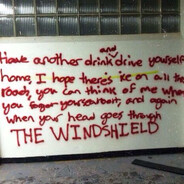 and
Have another drink drive yourself
home, I hope there's ice on all the
roads, you can think of me when
you forget your seatbelt, and again
when your head goes through
THE WINDSHIELD